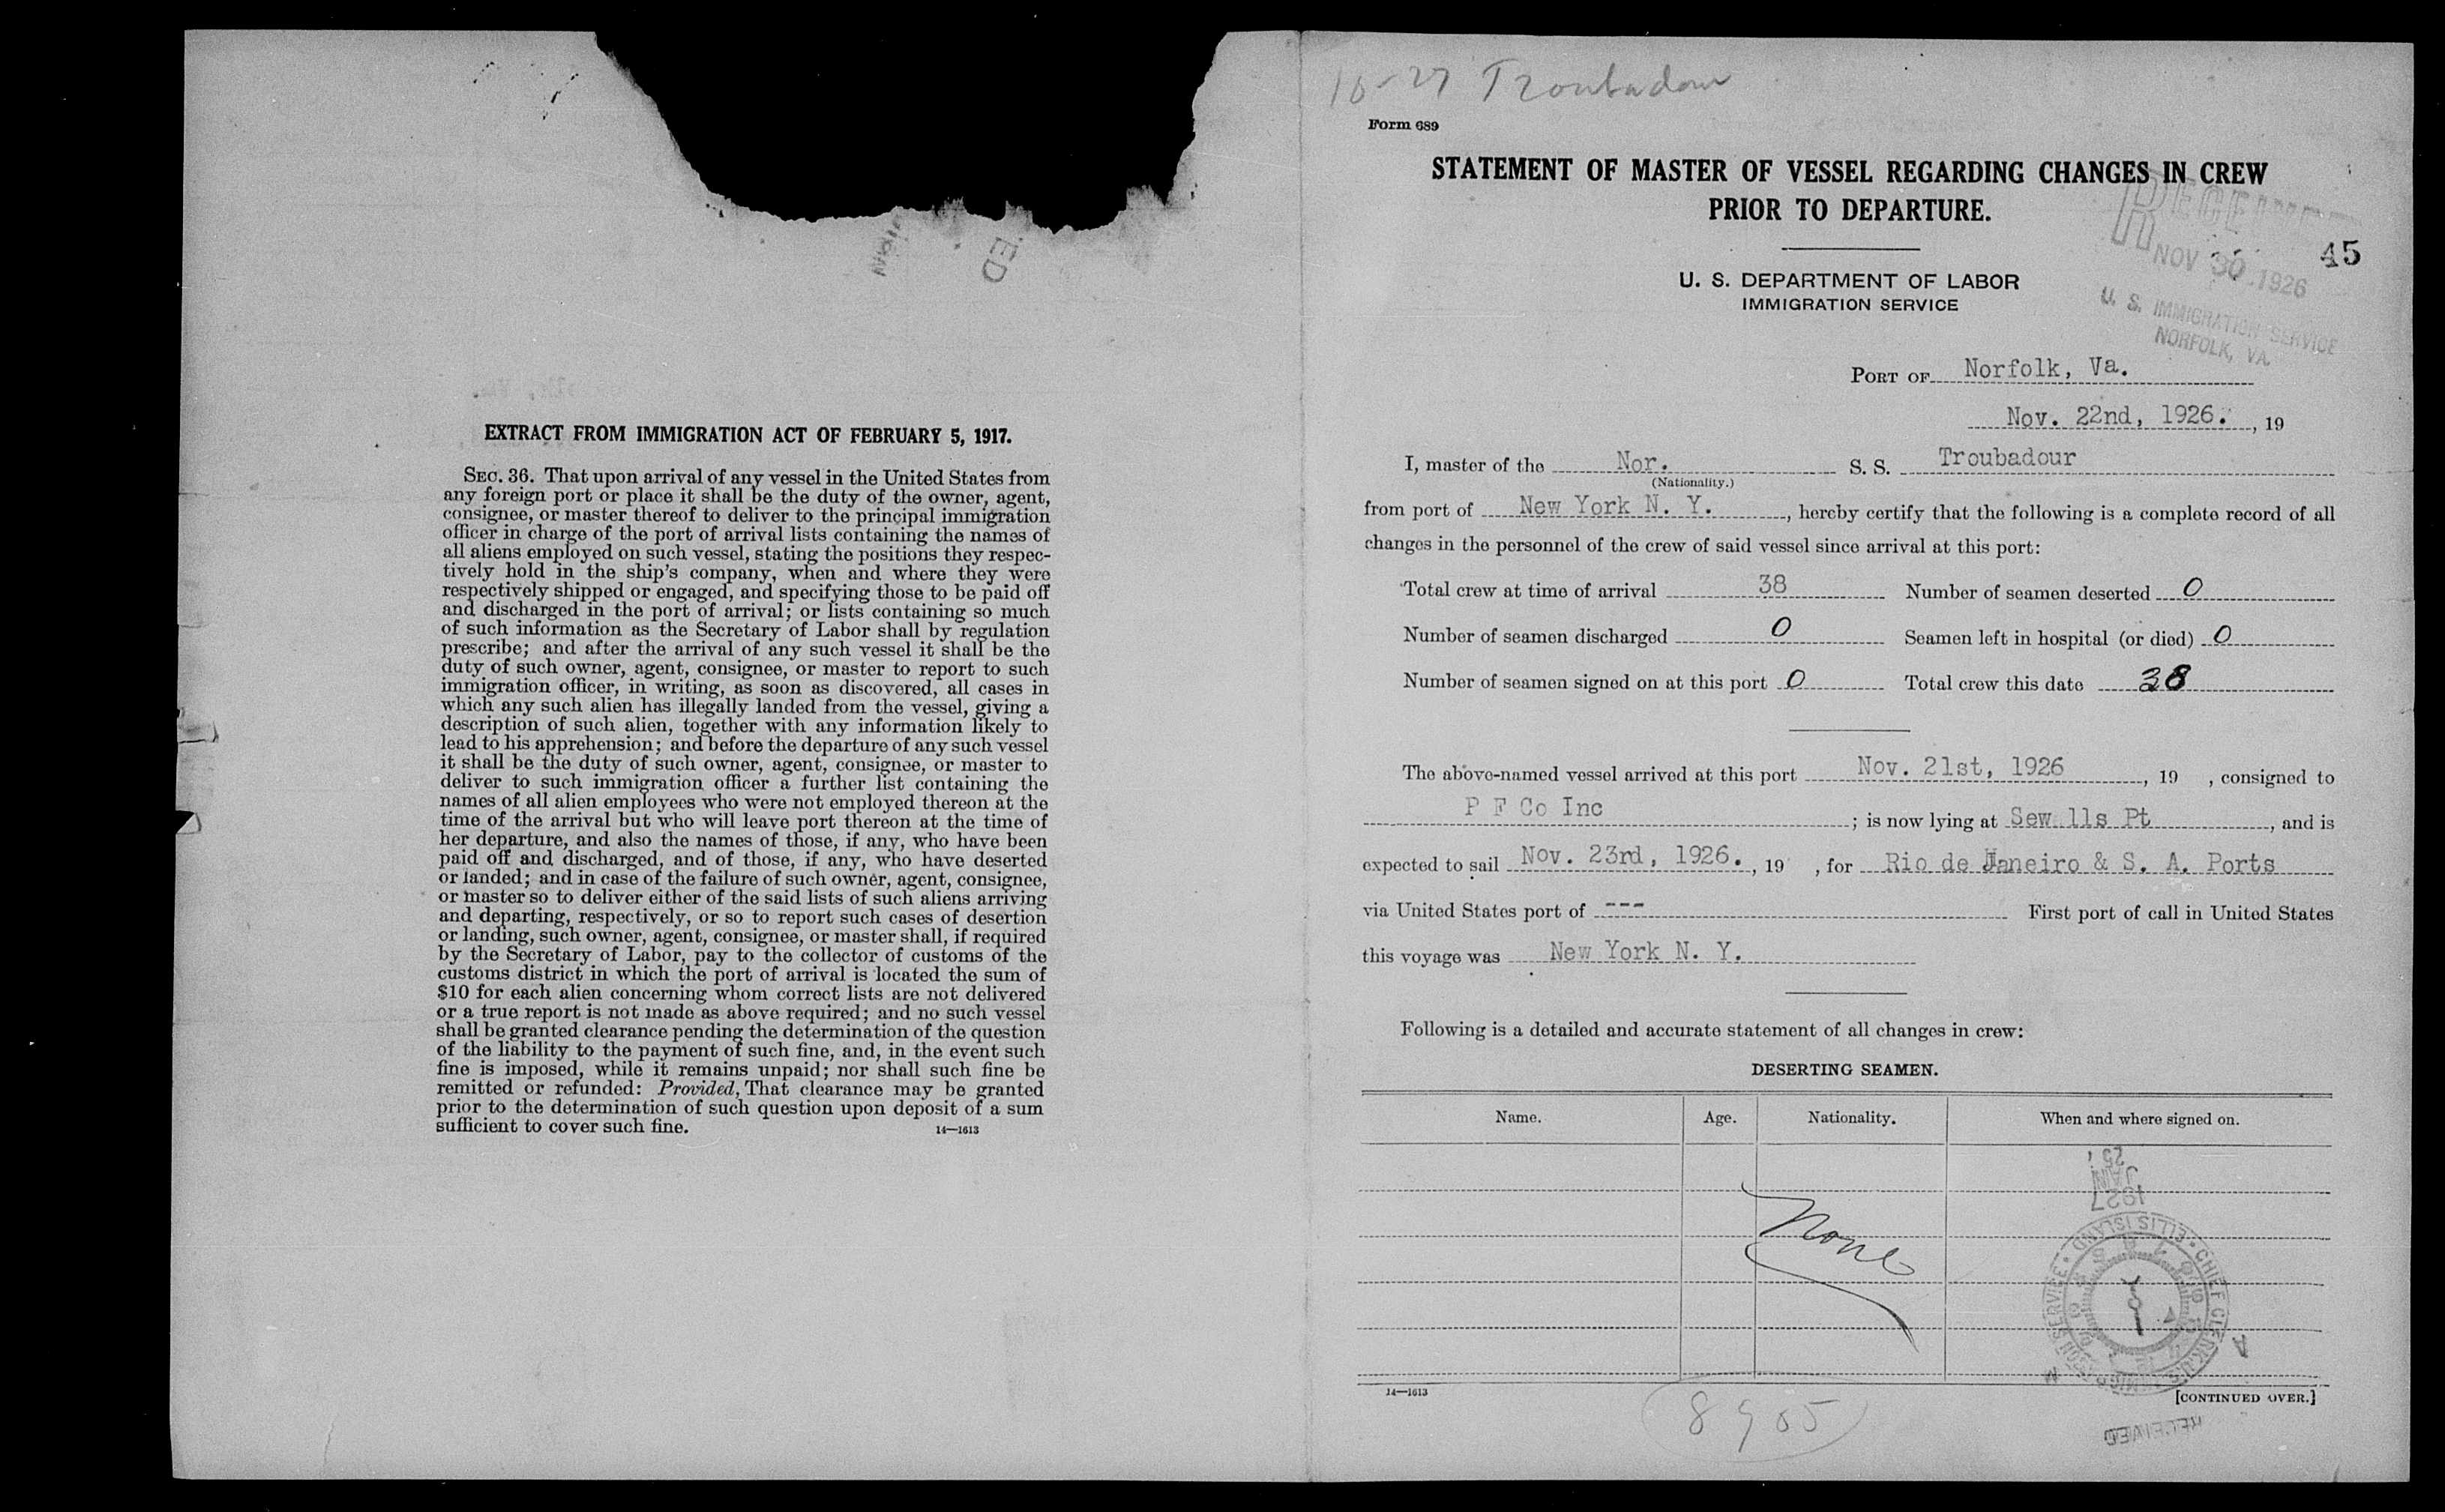 ED
EXTRACT FROM IMMIGRATION ACT OF FEBRUARY 5, 1917.
SEC. 36. That upon arrival of any vessel in the United States from
any foreign port or place it shall be the duty of the owner, agent,
consignee, or master thereof to deliver to the principal immigration
officer in charge of the port of arrival lists containing the names of
all aliens employed on such vessel, stating the positions they respec-
tively hold in the ship's company, when and where they were
respectively shipped or engaged, and specifying those to be paid off
and discharged in the port of arrival; or lists containing so much
of such information as the Secretary of Labor shall by regulation
prescribe; and after the arrival of any such vessel it shall be the
duty of such owner, agent, consignee, or master to report to such
immigration officer, in writing, as soon as discovered, all cases in
which any such alien has illegally landed from the vessel, giving a
description of such alien, together with any information likely to
lead to his apprehension; and before the departure of any such vessel
it shall be the duty of such owner, agent, consignee, or master to
deliver to such immigration officer a further list containing the
names of all alien employees who were not employed thereon at the
time of the arrival but who will leave port thereon at the time of
her departure, and also the names of those, if any, who have been
paid off and discharged, and of those, if any, who have deserted
or landed; and in case of the failure of such owner, agent, consignee,
or master so to deliver either of the said lists of such aliens arriving
and departing, respectively, or so to report such cases of desertion
or landing, such owner, agent, consignee, or master shall, if required
by the Secretary of Labor, pay to the collector of customs of the
customs district in which the port of arrival is located the sum of
$10 for each alien concerning whom correct lists are not delivered
or a true report is not made as above required; and no such vessel
shall be granted clearance pending the determination of the question
of the liability to the payment of such fine, and, in the event such
fine is imposed, while it remains unpaid; nor shall such fine be
remitted or refunded: Provided, That clearance may be granted
prior to the determination of such question upon deposit of a sum
sufficient to cover such fine. 14—1613
10-27 Troubadour
Form 689
STATEMENT OF MASTER OF VESSEL REGARDING CHANGES IN CREW
PRIOR TO DEPARTURE.
RECEIVED
NOV 30 1926
U. S. IMMIGRATION SERVICE
NORFOLK, VA.
45
U. S. DEPARTMENT OF LABOR
IMMIGRATION SERVICE
PORT OF Norfolk, Va.
Nov. 22nd, 1926. , 19
I, master of the Nor. S. S. Troubadour
(Nationality.)
from port of New York N. Y. , hereby certify that the following is a complete record of all
changes in the personnel of the crew of said vessel since arrival at this port:
Total crew at time of arrival 38 Number of seamen deserted 0
Number of seamen discharged 0 Seamen left in hospital (or died) 0
Number of seamen signed on at this port 0 Total crew this date 38
The above-named vessel arrived at this port Nov. 21st, 1926 , 19 , consigned to
P F Co Inc ; is now lying at Sew lls Pt , and is
expected to sail Nov. 23rd, 1926. , 19 , for Rio de Janeiro & S. A. Ports
via United States port of --- First port of call in United States
this voyage was New York N. Y.
Following is a detailed and accurate statement of all changes in crew:
DESERTING SEAMEN.
Name. Age. Nationality. When and where signed on.
None
1927
JAN
25
CHIEF CLERK ELLIS ISLAND
14—1613
[CONTINUED OVER.]
8905
RECEIVED